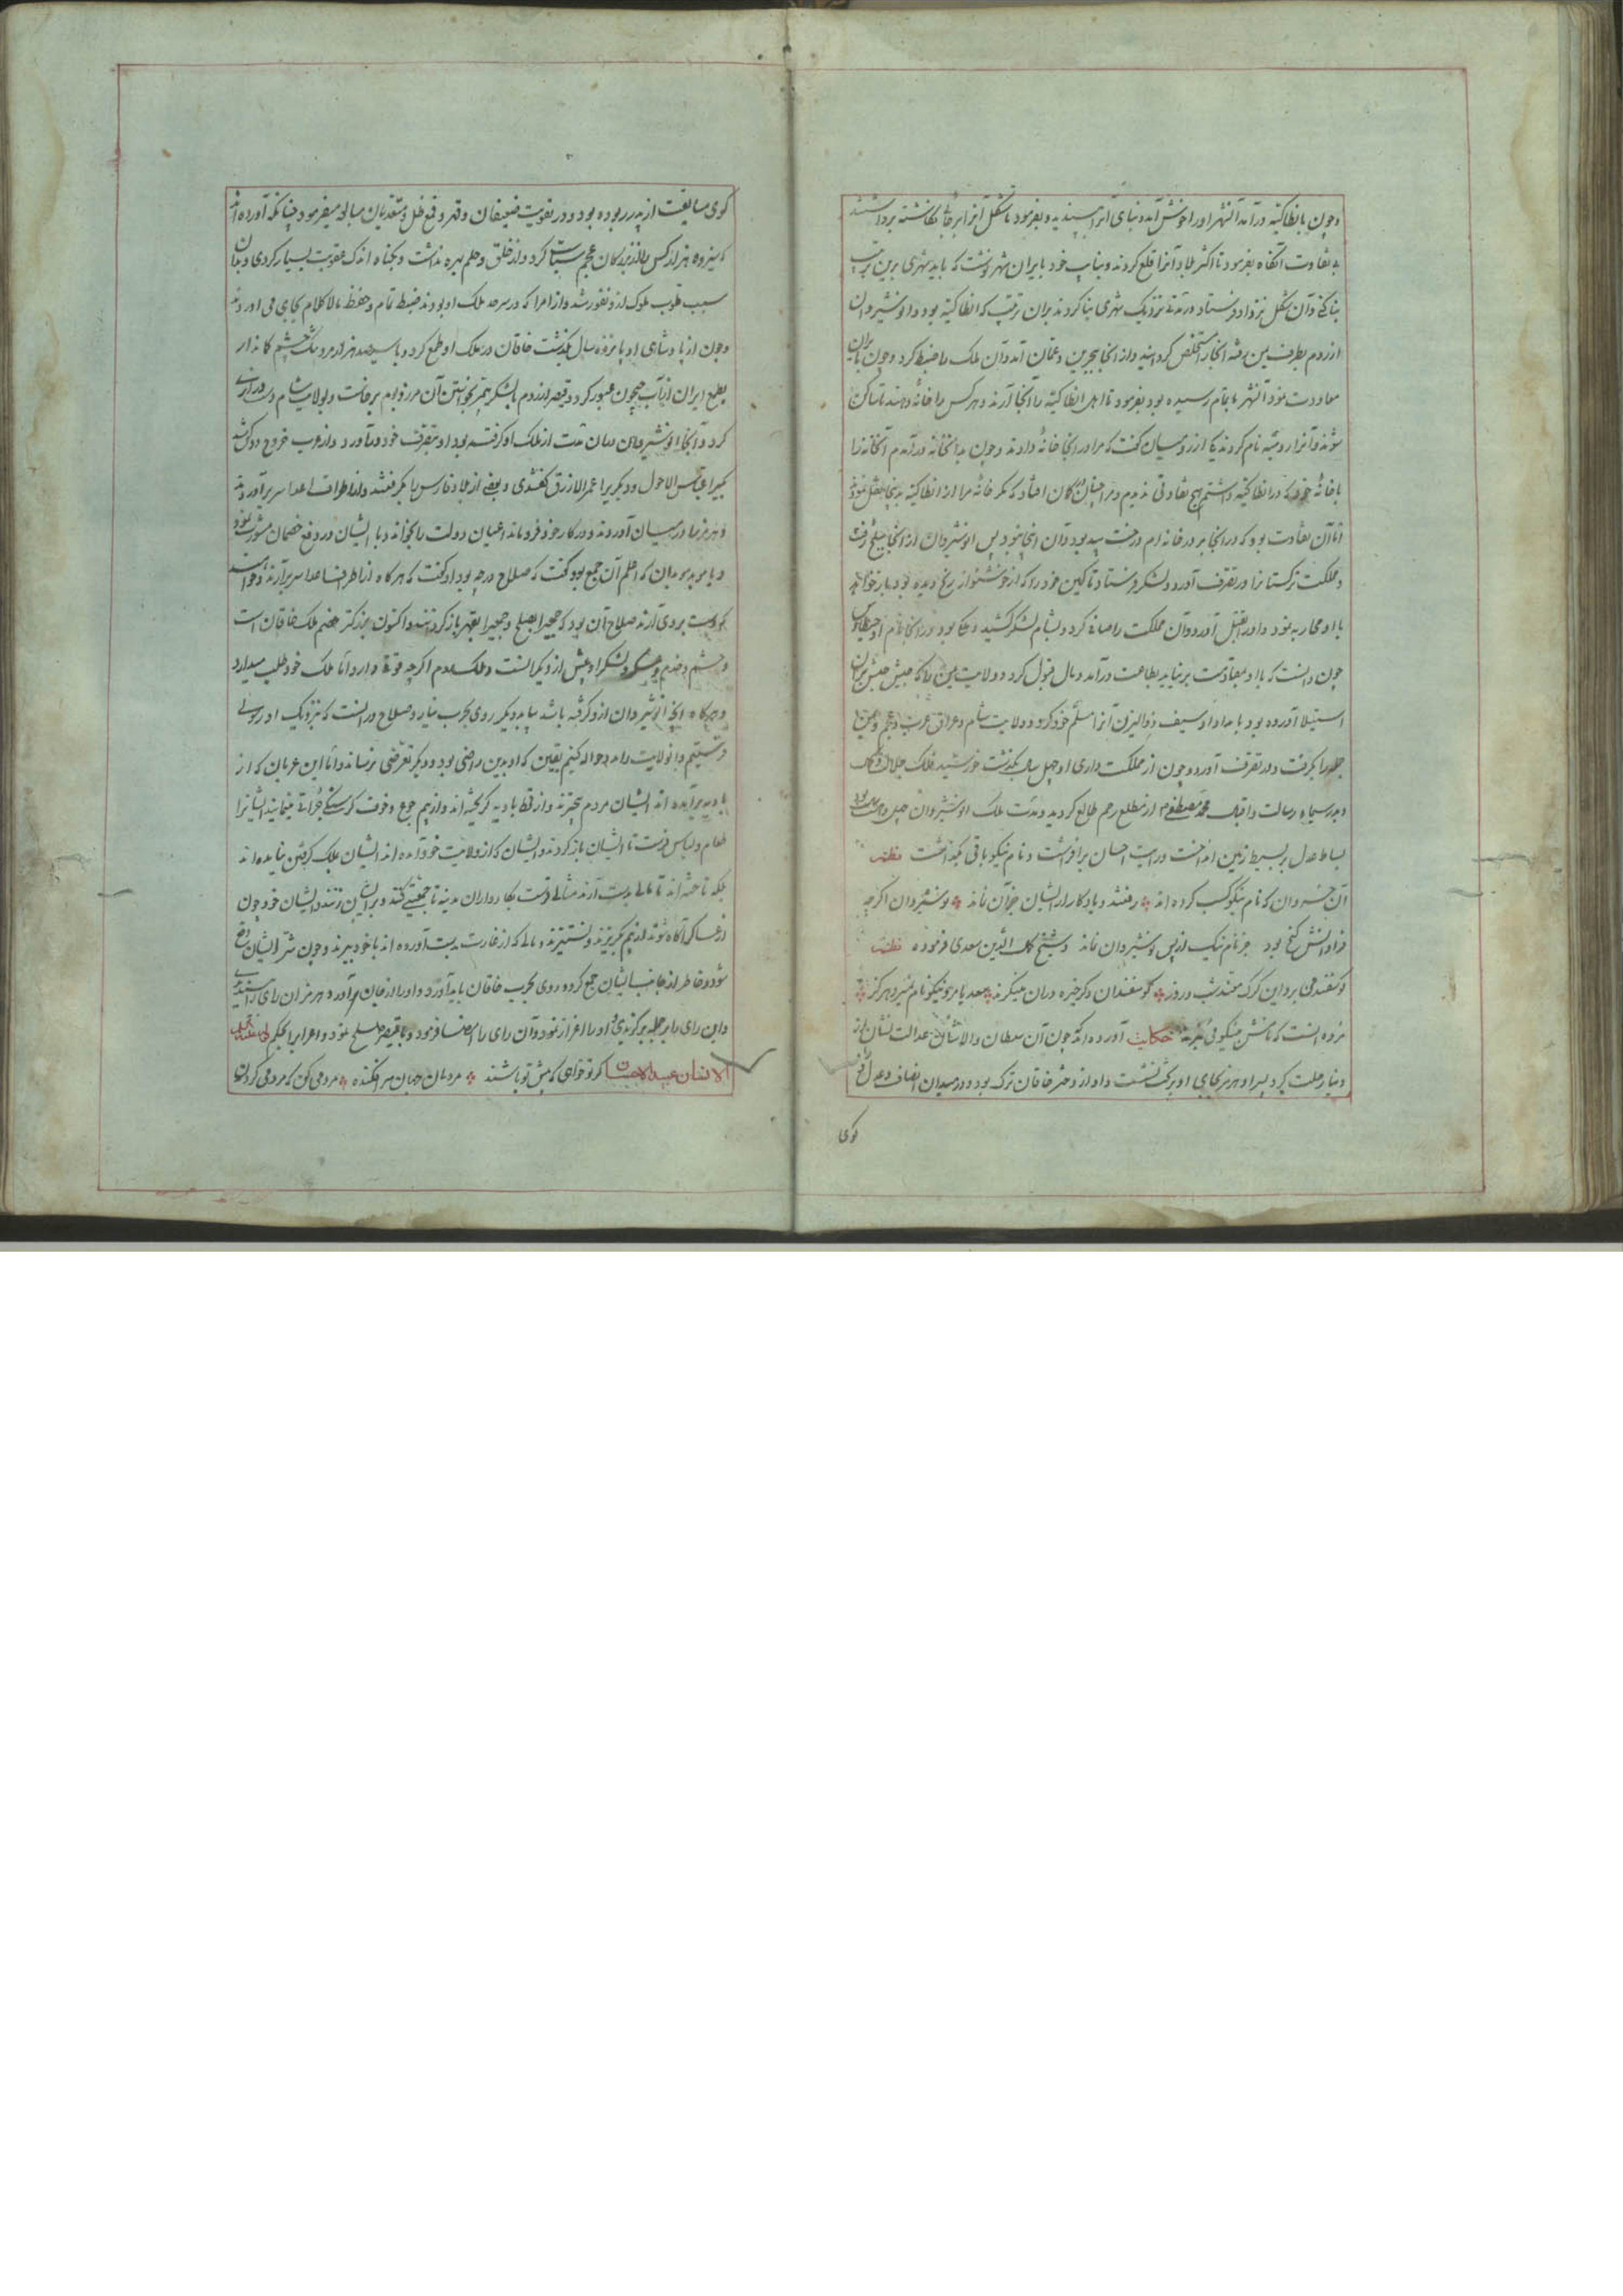 وچون بانطاکیه درآمد آنشهر اورا خوش آمد و بنای آنرا پسندیده و بفرمود تا شکل آنرا بر جائی نگاشته برداشتند
بی تفاوت آنگاه بفرمود تا اکثر بلاد آنرا قلع کردند و بنایب خود بایران شهر نوشت که باید شهری برین ترتیب
بنا کنی و آن شکل نزد او فرستاد در مدتی نزدیک شهری بنا کردند بران ترتیب که انطاکیه بود و انوشیروان
از روم بطرف یمن رفته آنجا را مستخلص گردانید و از آنجا ببحرین و عمان آمد و آن ملک را ضبط کرد و چون بایران
معاودت نمود آنشهر باتمام رسیده بود بفرمود تا اهل انطاکیه را آنجا آرند و هر کس را خانهٔ دهند تا ساکن
شوند و آنرا رومیه نام کردند یکی از رومیان گفت که مرا در آنجا خانهٔ دادند و چون بدانخانه درآمدم آنخانه را
با خانهٔ خود که در انطاکیه داشتم هیچ تفاوتی ندیدم و مرا چنان گمان افتاد که مگر خانهٔ مرا از انطاکیه بدینجا نقل نموده‌اند
اما آن تفاوت بود که در آنجا بر در خانه ام درخت بید بود و آن اینجا نبود پس انوشیروان از آنجا ببلخ رفت
و مملکت ترکستانرا در تصرف آورد و لشکر فرستاد تا کین خود را که از خوشنواز رنج دیده بود باز خواهد
با او محاربه نمود و اورا بقتل آورد و آن مملکت را صافی کرد و بشام لشکر کشید و
چون دانست که با او بمقاومت بر نیاید بطاعت درآمد و مال قبول کرد و ولایت یمن را که حبش بران
استیلا آورده بود بامداد او سیف ذوالیزن آنرا مسلم خود کرد و ولایت شام و عراق عرب و عجم و یمن
جمله را بگرفت و در تصرف آورد و چون از مملکت داری او چهل سال بگذشت خورشید فلک جلال
و بدر سماء رسالت و اقبال محمد مصطفی ازمطلع رحم طالع گردید و مدت ملک انوشیروان چهل وهشت سال بود
بساط عدل بر بسیط زمین انداخت و رایت احسان برافراشت و نام نیکو باقی بگذاشت نظم
آن خسروان که نام نیکو کسب کرده اند رفتند و یادگار ازایشان جز آن نماند نوشیروان اگرچه
فراوانش گنج بود جز نام نیک از پس نوشیروان نماند و شیخ مصلح الدین سعدی فرموده نظم
گوسفندی برد این گرگ مزور هر روز گوسفندان دگر خیره دران مینگرند سعدیا مرد نیکونام نمیرد هرگز
مرده آنست که نامش بنیکوئی نبرند حکایت آورده اند که چون آن سلطان والاشان عدالت نشان از
دنیا رحلت کرد پسر او هرمز بجای او بر تخت نشست و او از دختر خاقان ترک بود و در میدان انصاف و عدل
گوی
گوی مسابقت از پدر ربوده بود و در تقویت ضعیفان و قهر و قمع ظلم و متعدیان مبالغه میفرمود چنانکه آورده اند
که سیزده هزار کس را از بزرگان عجم سیاست کرد و از خلق و حلم بهره نداشت و بگناه اندک عقوبت بسیار کردی و بدان
سبب قلوب ملوک ازو نفور شد و از امرا که در سرحد ملک او بودند ضبط تمام و حفظ مالا کلام بجای می آوردند
و چون از پادشاهی او پانزده سال بگذشت خاقان در ملک او طمع کرد و با سیصد هزار مرد تنگ چشم کاندار
بطمع ایران از آب جیحون عبور کرد و قیصر از روم با لشکر بهم بخواستن آن مرز و بوم برخاست و بولایت شام دست درازی
کرد و آنجا انوشیروان دران مدت از ملک او گرفته بود او بتصرف خود در آورد و از عرب خروج دو کس شد
یکی را عباس الاحول و دیگری را عمر الازرق گفتندی و بعضی از بلاد فارس را بگرفتند و از اطراف اعدا سر برآوردند
و هرمز را درمیان آوردند و در کار خود فرو ماند اعیان دولت را بخواند و با ایشان در دفع خصمان مشورت نمود
و با موبد موبدان که اعلم آن جمع بود گفت که صلاح درچه بود او گفت که هرگاه از اطراف اعدا سر برآرند و خواهند
که دست بردی آرند صلاح آن بود که جمعی را بصلح و جمعی را بقهر باز گردانند و اکنون بزرگتر خصم ملک خاقان است
و حشم و خدم و لشکر او بیش از دیگرانست و ملک روم اگرچه قوتی دارد اما ملک خود طلب میدارد
و هرگاه آنچه انوشیروان ازو گرفته باشد بیابد دیگر روی بحرب نیارد و صلاح درانست که بنزدیک او رسولی
فرستیم و آنولایت را بدو حواله کنیم یقین که او بدین راضی بود و دیگر تعرضی نرساند و اما این عربان که از
بادیه برآمده اند ایشان مردم بیچیزند و از قحط بادیه گریخته اند و از بیم جوع و خوف گرسنگی جراتی مینمایند ایشانرا
طعام و لباس فرست تا ایشان باز گردند و ایشان که از ولایت خود آمده اند ایشان بملک گرفتن نیامده اند
بلکه تاخته اند تا مالی بدست آرند مثالی فرست بکارداران مدینه تا جمعیتی کنند و برایشان زنند و ایشان خود چون
از عساکر آگاه شوند از بیم بگریزند و نستیزند و مالی که از غارت بدست آورده اند با خود ببرند و چون شر ایشان دفع
شود و خاطر از جانب ایشان جمع گردد روی بحرب خاقان باید آورد و اورا از میان برآورد و هرمز آن رای را پسندیده
و این رای را بر جمله برگزیدی و او را اعزاز نمود و آن رای را امضا فرمود و با قیصر صلح نمود و اعراب را بحکم
الانسان عبید الاحسان گر تو خواهی که پیش تو باشند مردمان جهان سر افکنده مردمی کن که مردمی کردن